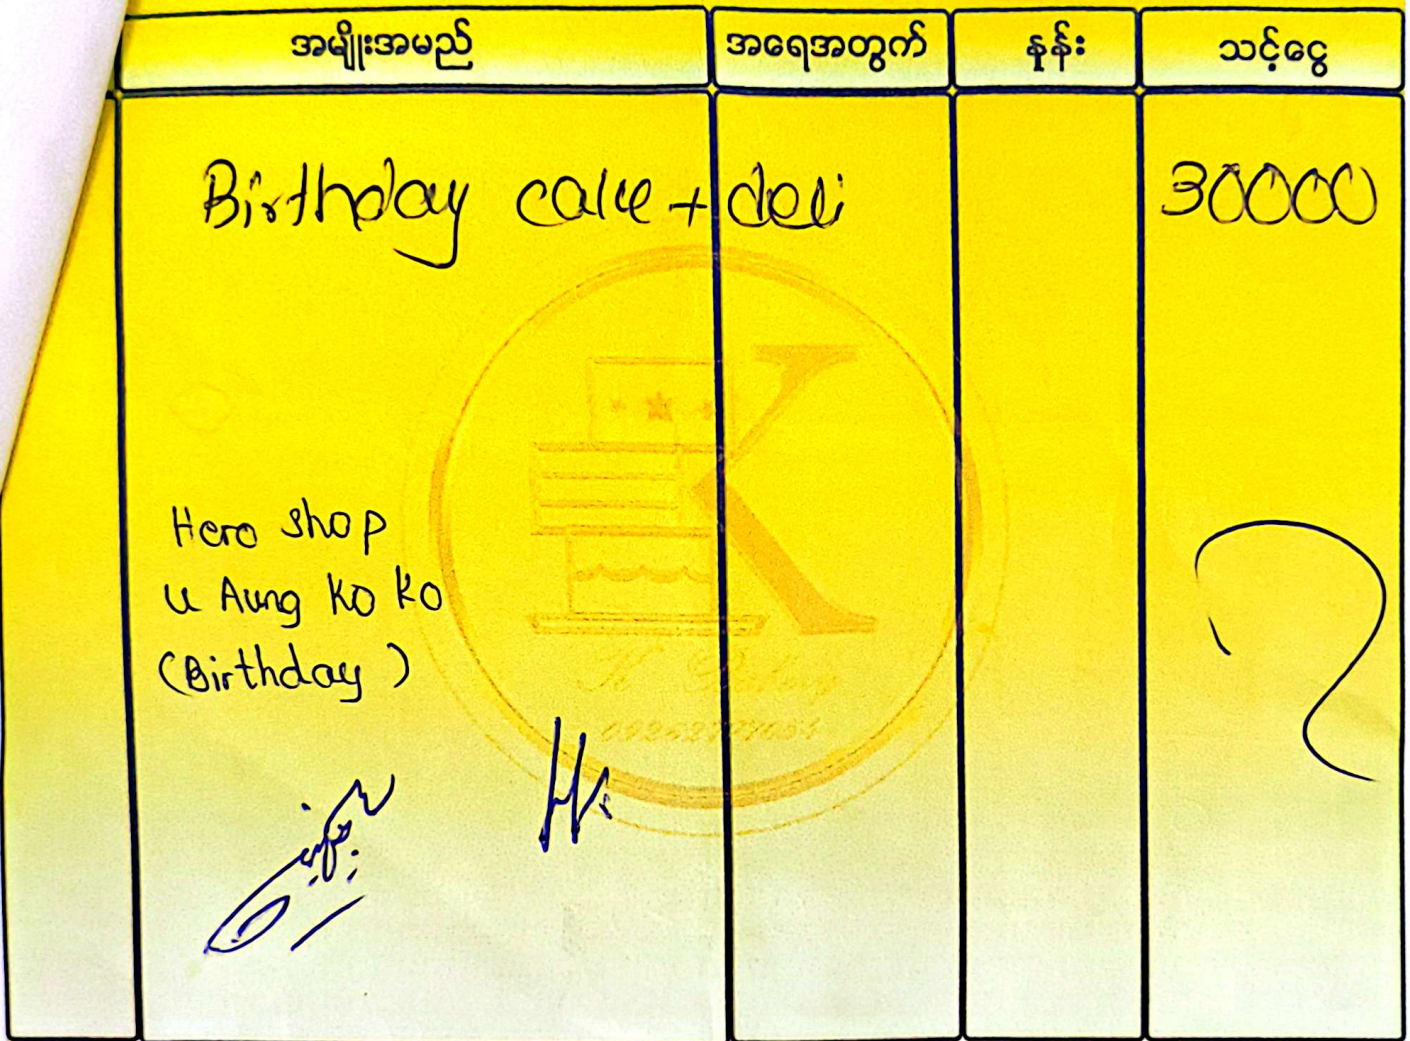 အမျိုးအမည် အရေအတွက် နှုန်း သင့်ငွေ
Birthday cake + deli 30000
Hero shop
U Aung Ko Ko
(Birthday)
K Bakery